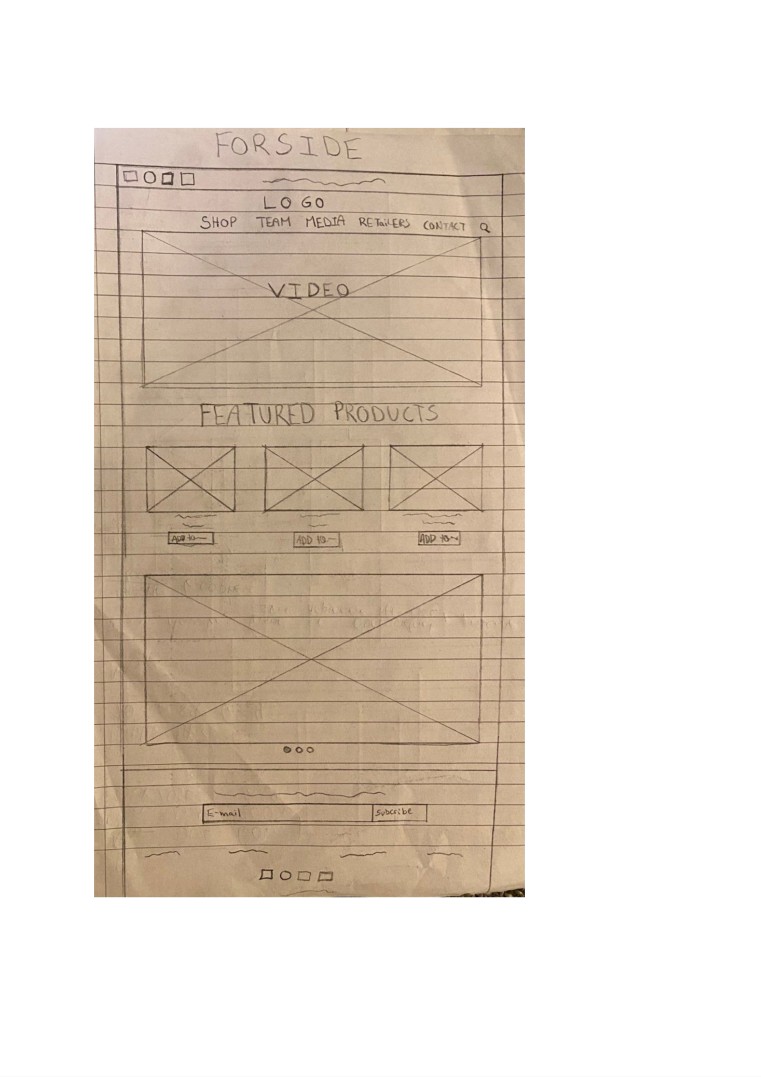 FORSIDE
LOGO
SHOP TEAM MEDIA RETAILERS CONTACT
VIDEO
FEATURED PRODUCTS
ADD to ADD to ADD to
E-mail Subscribe